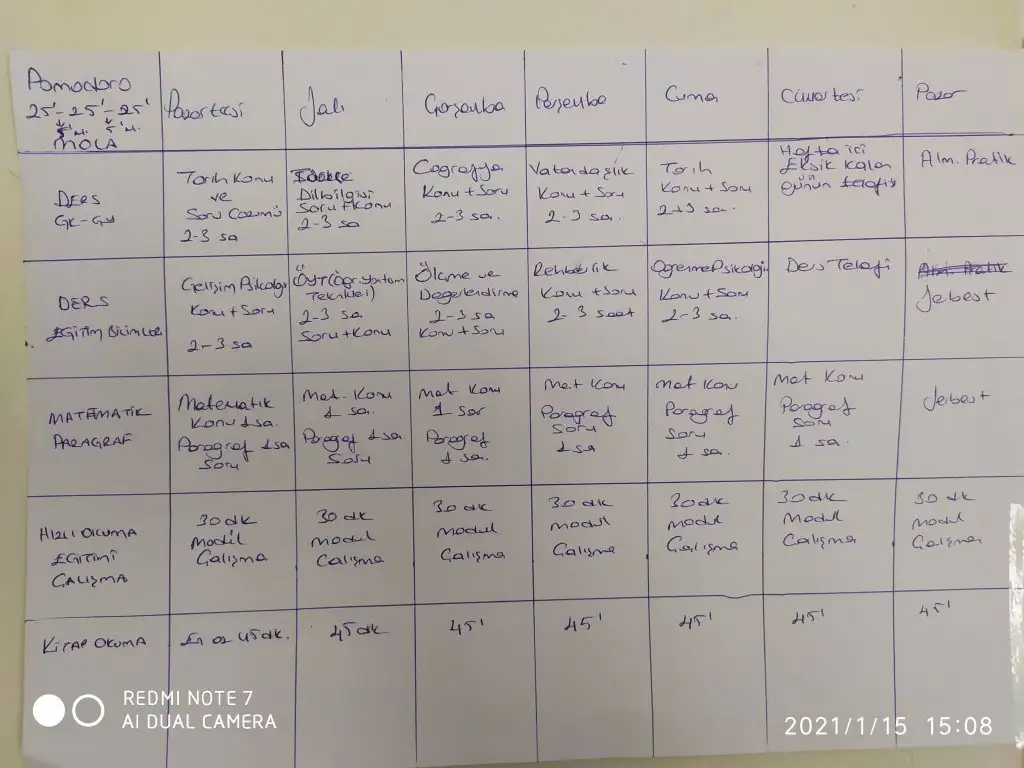 Pomodoro
25'-25'-25'
5'M. 5'M.
MOLA
Pazartesi
Salı
Çarşamba
Perşembe
Cuma
Cumartesi
Pazar
DERS
GK-GY
Tarih Konu
ve
Soru Çözümü
2-3 sa
Türkçe
Dilbilgisi
Soru+Konu
2-3 sa
Coğrafya
Konu + Soru
2-3 sa.
Vatandaşlık
Konu + Soru
2-3 sa.
Tarih
Konu + Soru
2-3 sa.
Hafta içi
Eksik Kalan
günün telafisi
Alm. Pratik
DERS
EĞİTİM BİLİMLERİ
Gelişim Psikoloji
Konu + Soru
2-3 sa
ÖYT (Öğr. Yöntem
Teknikleri)
2-3 sa.
Soru+Konu
Ölçme ve
Değerlendirme
2-3 sa
Konu + Soru
Rehberlik
Konu + Soru
2-3 saat
Öğrenme Psikolojisi
Konu + Soru
2-3 sa.
Ders Telafi
Alm. Pratik
Serbest
MATEMATİK
PARAGRAF
Matematik
Konu 1 sa.
Paragraf 1 sa
Soru
Mat. Konu
1 sa.
Paragraf 1 sa
Soru
Mat Konu
1 saa
Paragraf
1 sa.
Mat Konu
Paragraf
Soru
1 sa
Mat Konu
Paragraf
Soru
1 sa.
Mat Konu
Paragraf
Soru
1 sa.
Serbest
HIZLI OKUMA
EĞİTİMİ
ÇALIŞMA
30 dk
Modül
Çalışma
30 dk
modül
Çalışma
30 dk
modül
Çalışma
30 dk
modül
Çalışma
30 dk
modül
Çalışma
30 dk
Modül
Çalışma
30 dk
modül
Çalışma
KİTAP OKUMA
En az 45 dk.
45 dk
45'
45'
45'
45'
45'
REDMI NOTE 7
AI DUAL CAMERA
2021/1/15 15:08